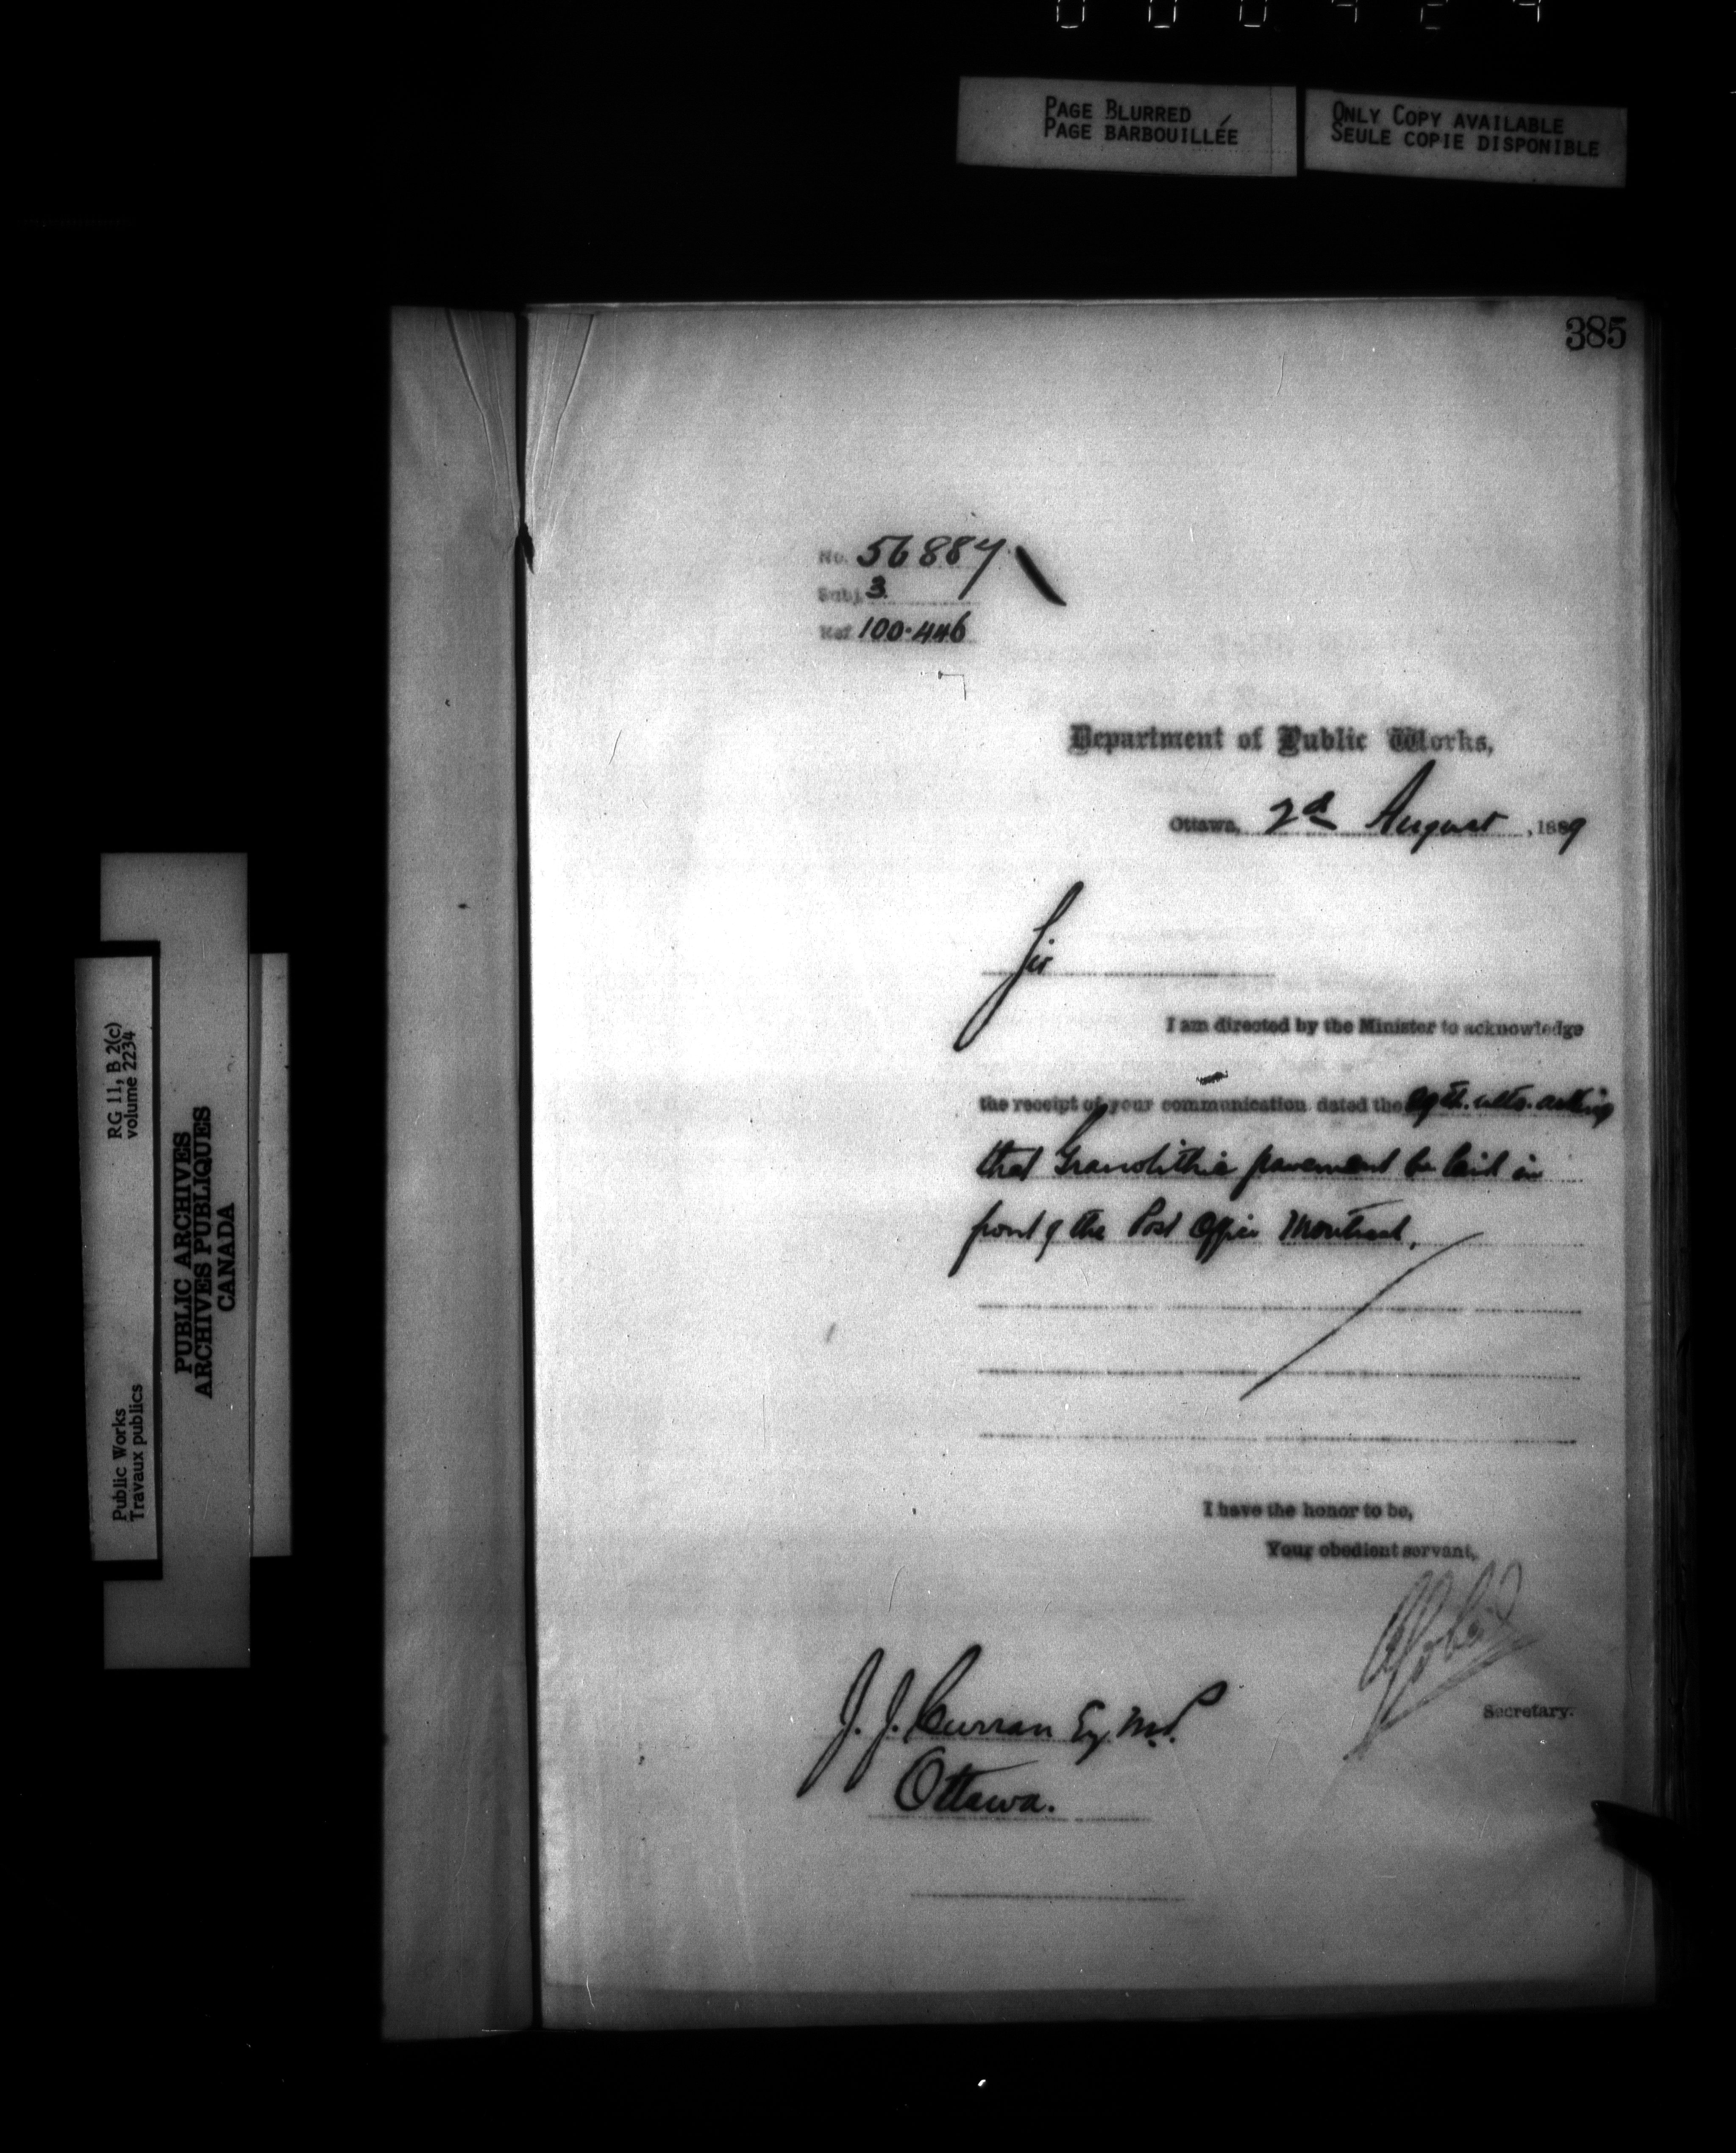 PAGE BLURRED
PAGE BARBOUILLÉE
ONLY COPY AVAILABLE
SEULE COPIE DISPONIBLE
385
No. 56887
Subj. 3
Ref. 100.446
Department of Public Works,
Ottawa, 2d August, 1889
Sir
I am directed by the Minister to acknowledge
the receipt of your communication dated the ulto. asking
that Granolithic pavement be laid in
front of the Post Office Montreal,
I have the honor to be,
Your obedient servant,
Secretary.
J. J. Curran Esq. M.P.
Ottawa.
RG 11, B 2(c)
volume 2234
Public Works
Travaux publics
PUBLIC ARCHIVES
ARCHIVES PUBLIQUES
CANADA